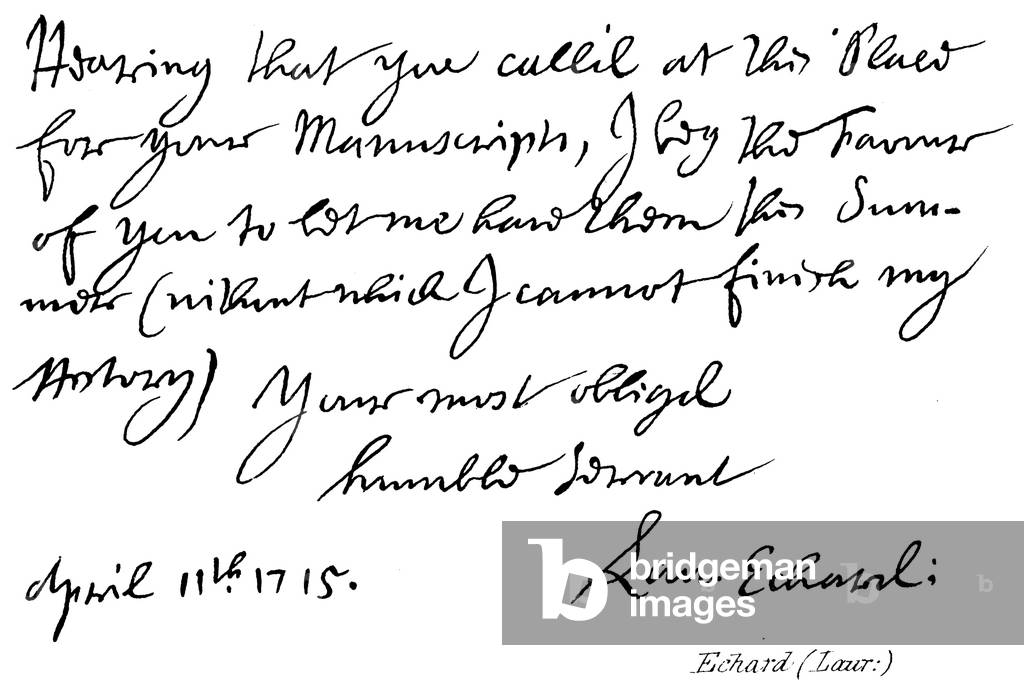 Hearing that you call'd at this Place
for your Manuscripts, I beg the Favour
of you to let me have them this Sum-
mer (without which I cannot finish my
History) Your most obliged
humble Servant
April 11th. 1715. Laur. Echard:
bridgeman
images
b
Echard (Laur:)